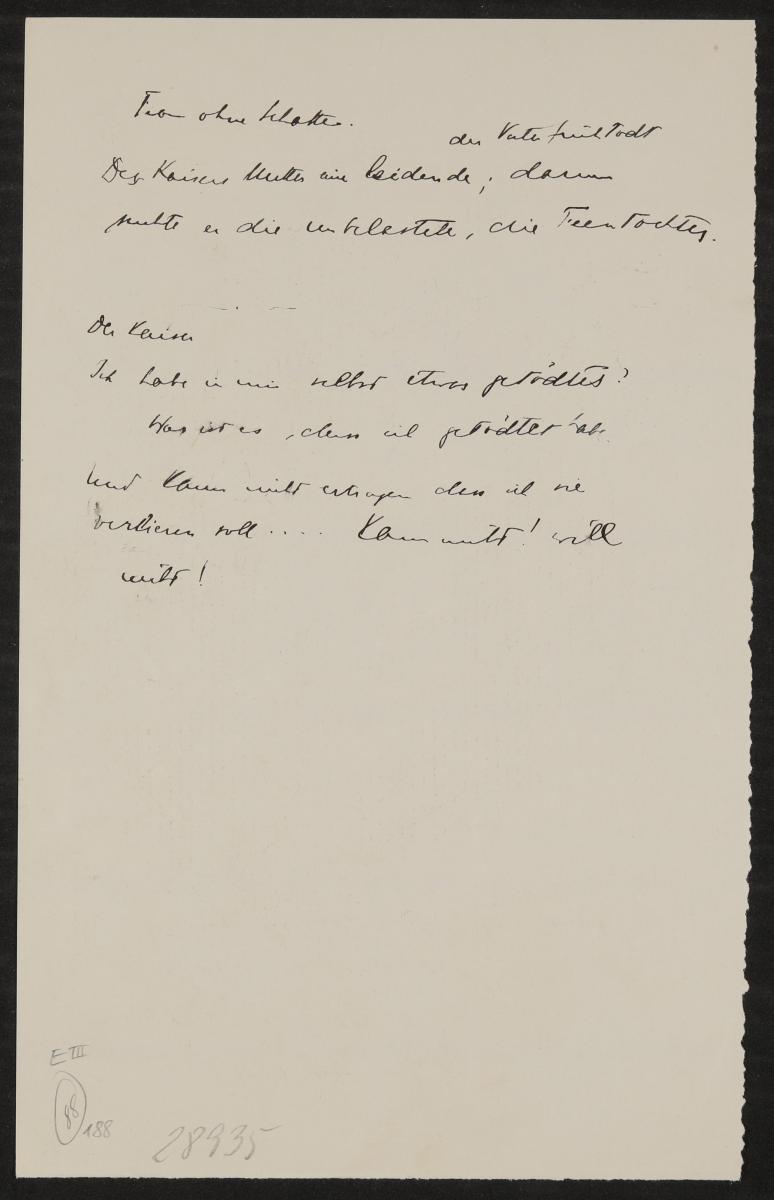 Frau ohne Schatten.
der Vater früh Todt
Des Kaisers Mutter eine Leidende; darum
suchte er die unbelastete, die Feentochter.
Der Kaiser
Ich habe in mir selbst etwas getödtet?
Was ist es, dass ich getödtet habe
Und kann nicht ertragen dass ich sie
verlieren soll .... Kann nicht! will
nicht!
E III
88
188
28935